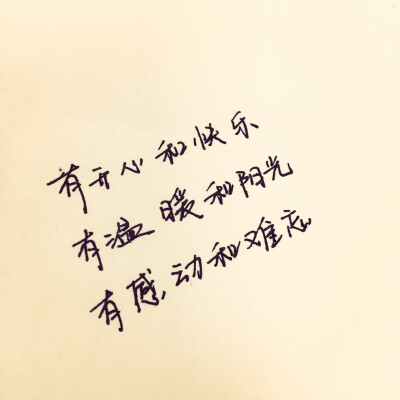 有开心和快乐
有温暖和阳光
有感动和难忘